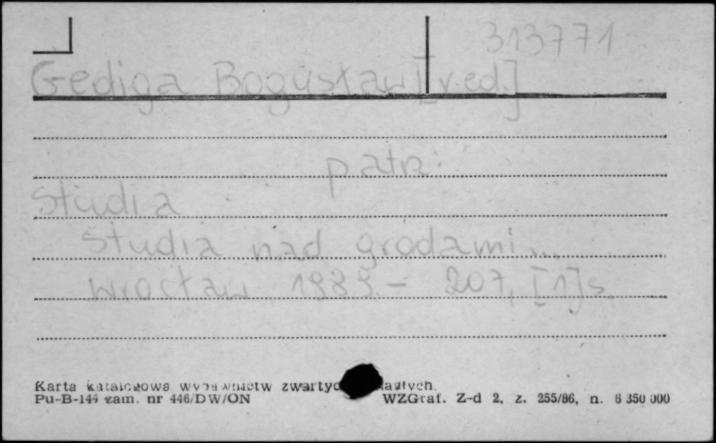 313771
Gediga Bogusław [red.]
patrz:
Studia
Studia nad grodami...
Wrocław 1989.- 207, [1] s.
Karta katalogowa wydawnictw zwartych
Pu-B-144 zam. nr 446/DW/ON WZGraf. Z-d 2, z. 255/86, n. 6 350 000